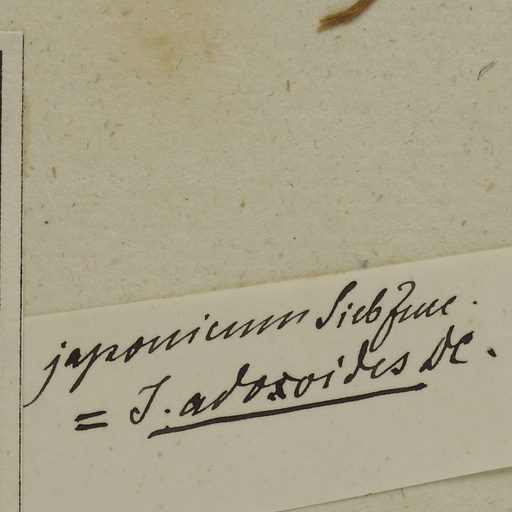 japonicum SiebZucc.
= I. adoxoides DC.